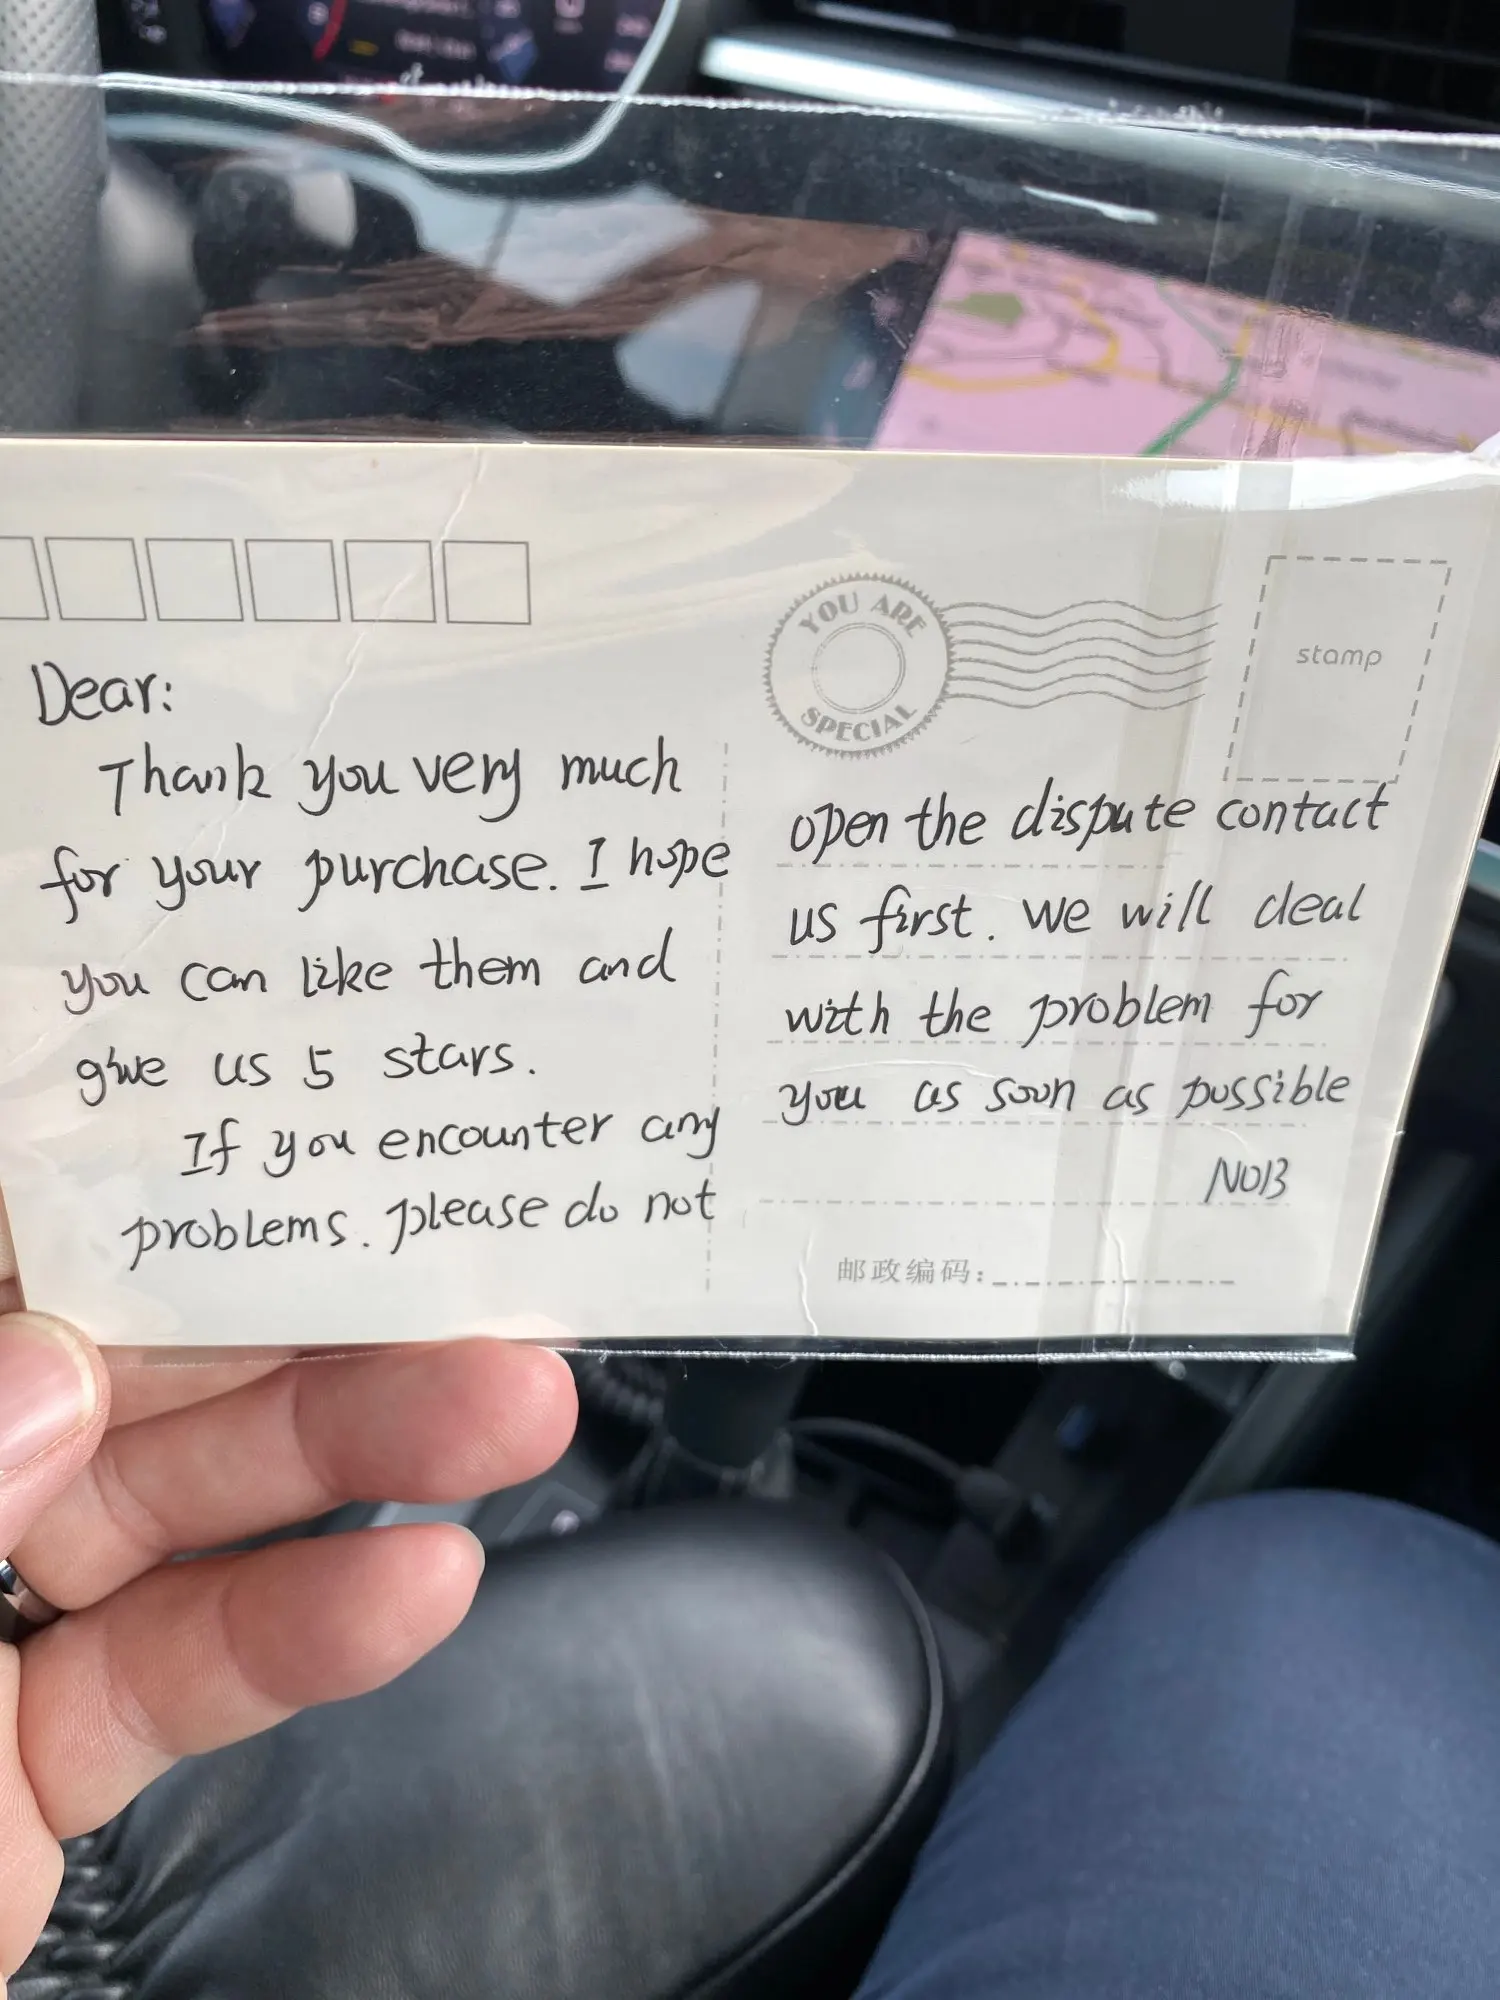 YOU ARE
SPECIAL
stamp
Dear:
Thank you very much
for your purchase. I hope
you can like them and
give us 5 stars.
If you encounter any
problems. please do not
open the dispute contact
us first. we will deal
with the problem for
you as soon as possible
NO13
邮政编码: